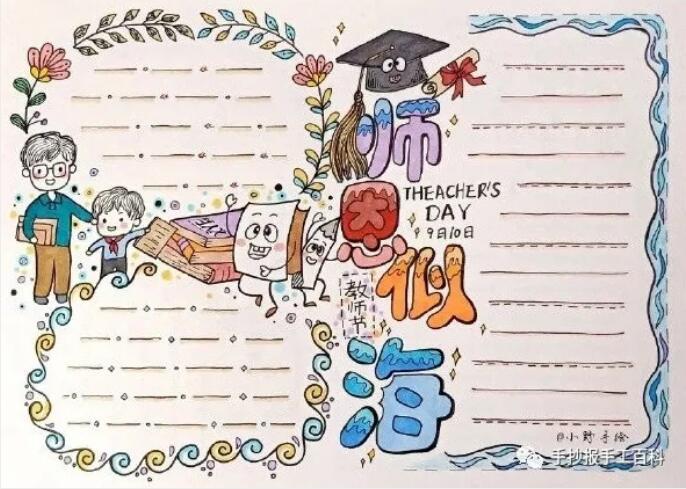 师
恩
似
海
THEACHER'S
DAY
9月10日
教师节
@小野手绘
手抄报手工百科